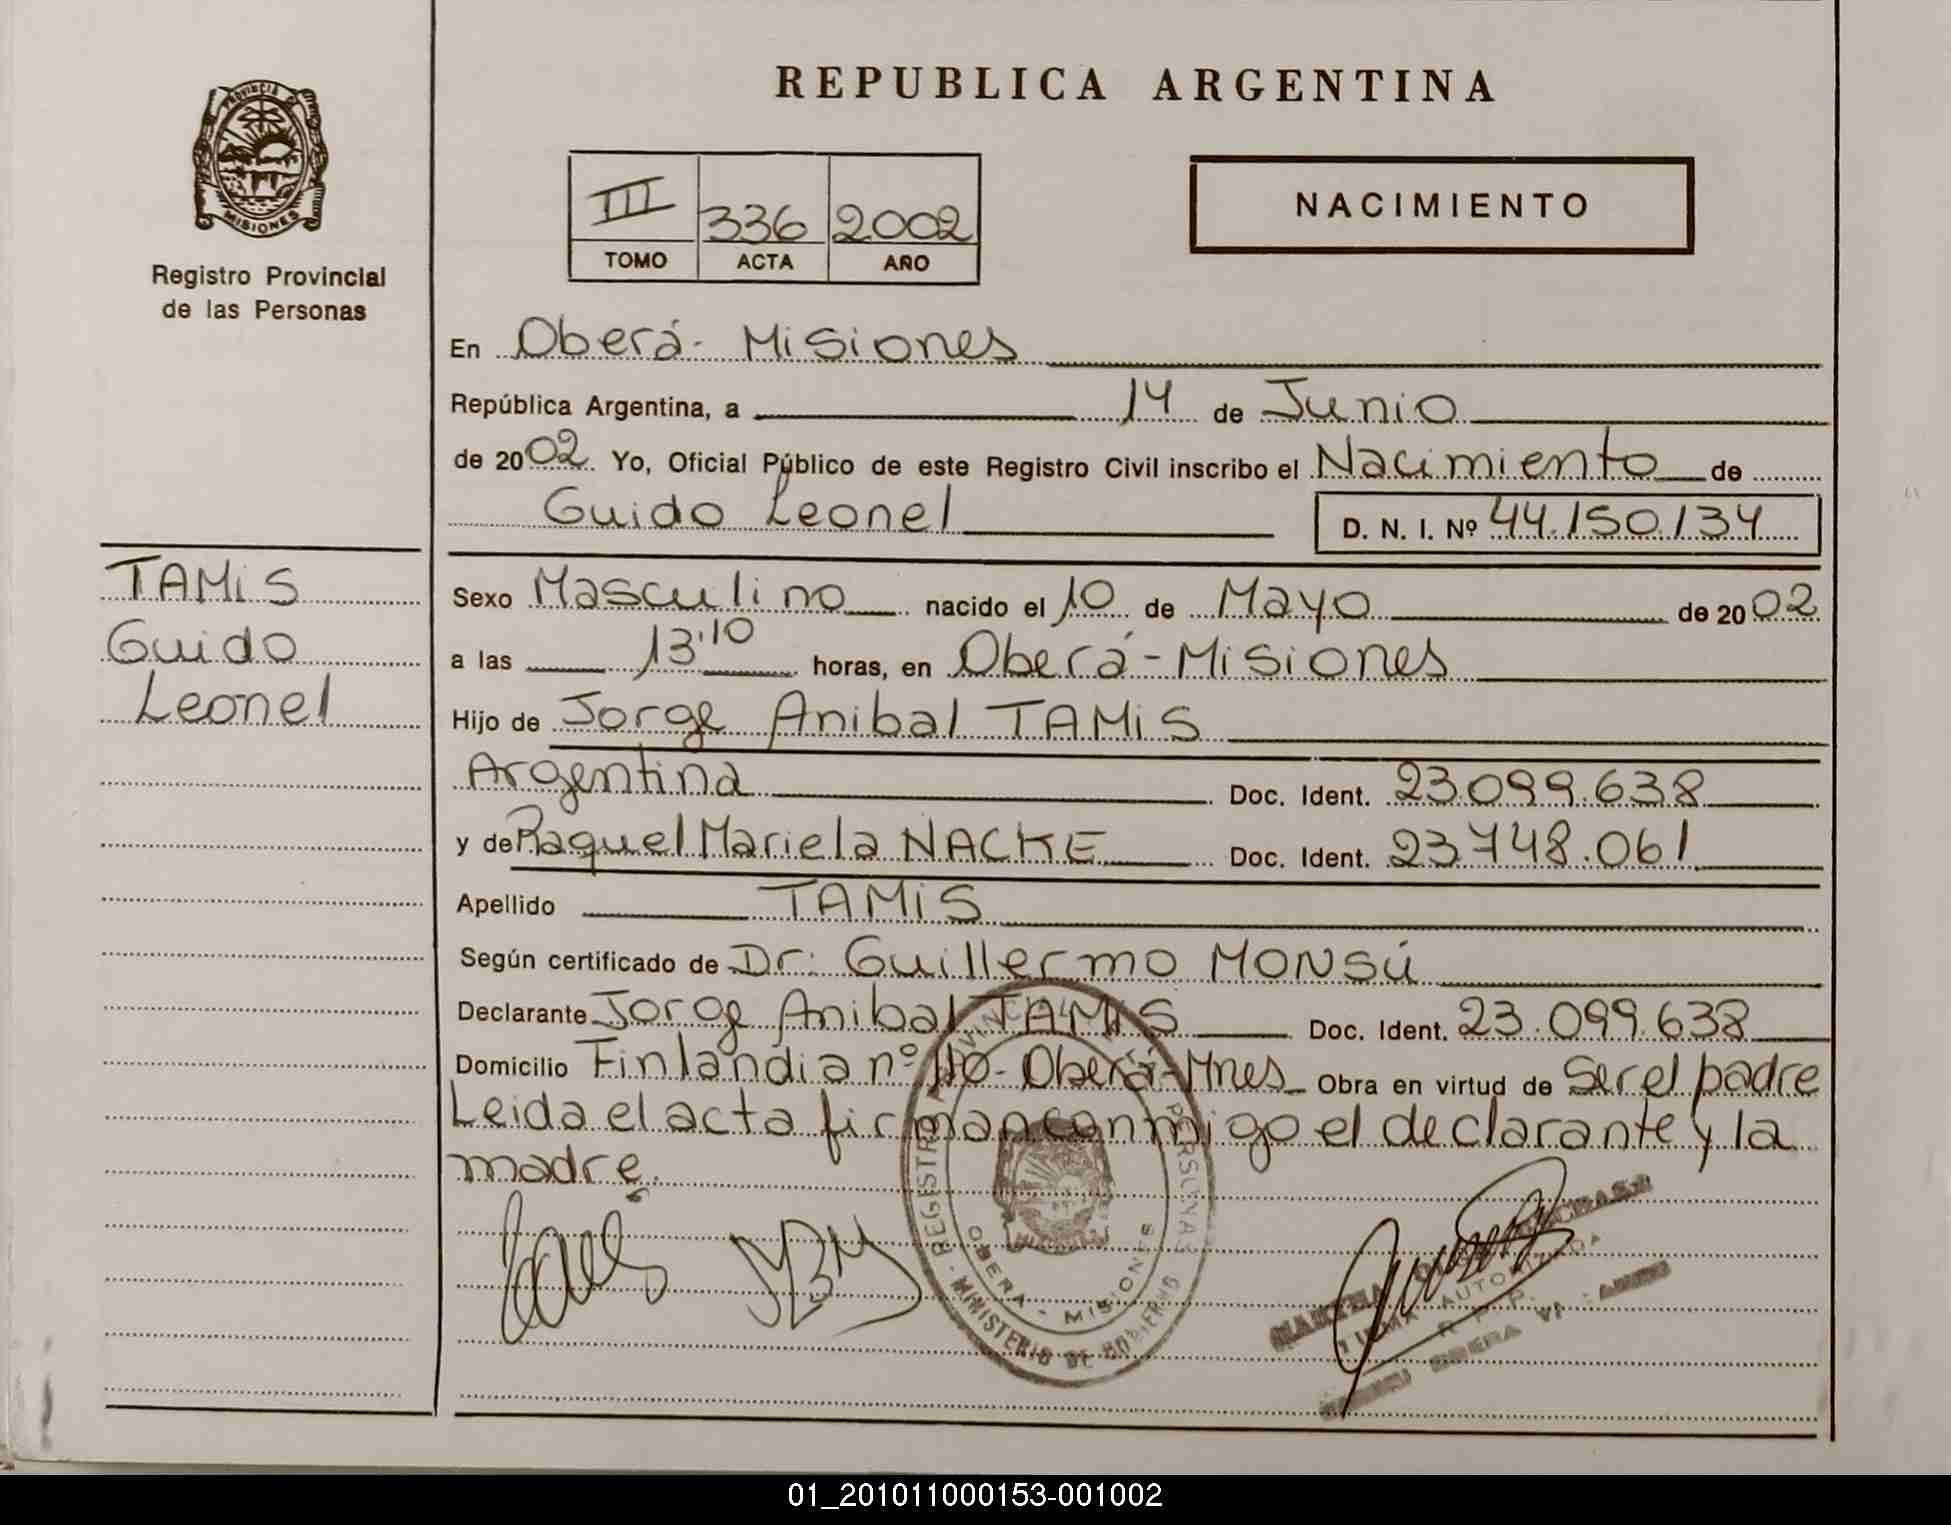 REPUBLICA ARGENTINA
PROVINCIA DE MISIONES
Registro Provincial
de las Personas
III 336 2002
TOMO ACTA AÑO
NACIMIENTO
En Oberá - Misiones
República Argentina, a 14 de Junio
de 2002 Yo, Oficial Público de este Registro Civil inscribo el Nacimiento de
Guido Leonel D. N. I. Nº 44.150.134
TAMiS
Guido
Leonel
Sexo Masculino nacido el 10 de Mayo de 2002
a las 13'10 horas, en Oberá - Misiones
Hijo de Jorge Anibal TAMiS
Argentina Doc. Ident. 23.099.638
y de Raquel Mariela NACKE Doc. Ident. 23.748.061
Apellido TAMiS
Según certificado de Dr: Guillermo MONSÚ
Declarante Jorge Anibal TAMiS Doc. Ident. 23.099.638
Domicilio Finlandia nº 110 - Oberá - Mnes Obra en virtud de Ser el padre
Leida el acta firman conmigo el declarante y la
madre.
REGISTRO PERSONAS
OBERA - MISIONES
MINISTERIO DE GOBIERNO
FIRMA AUTORIZADA
R. P. P.
01_201011000153-001002